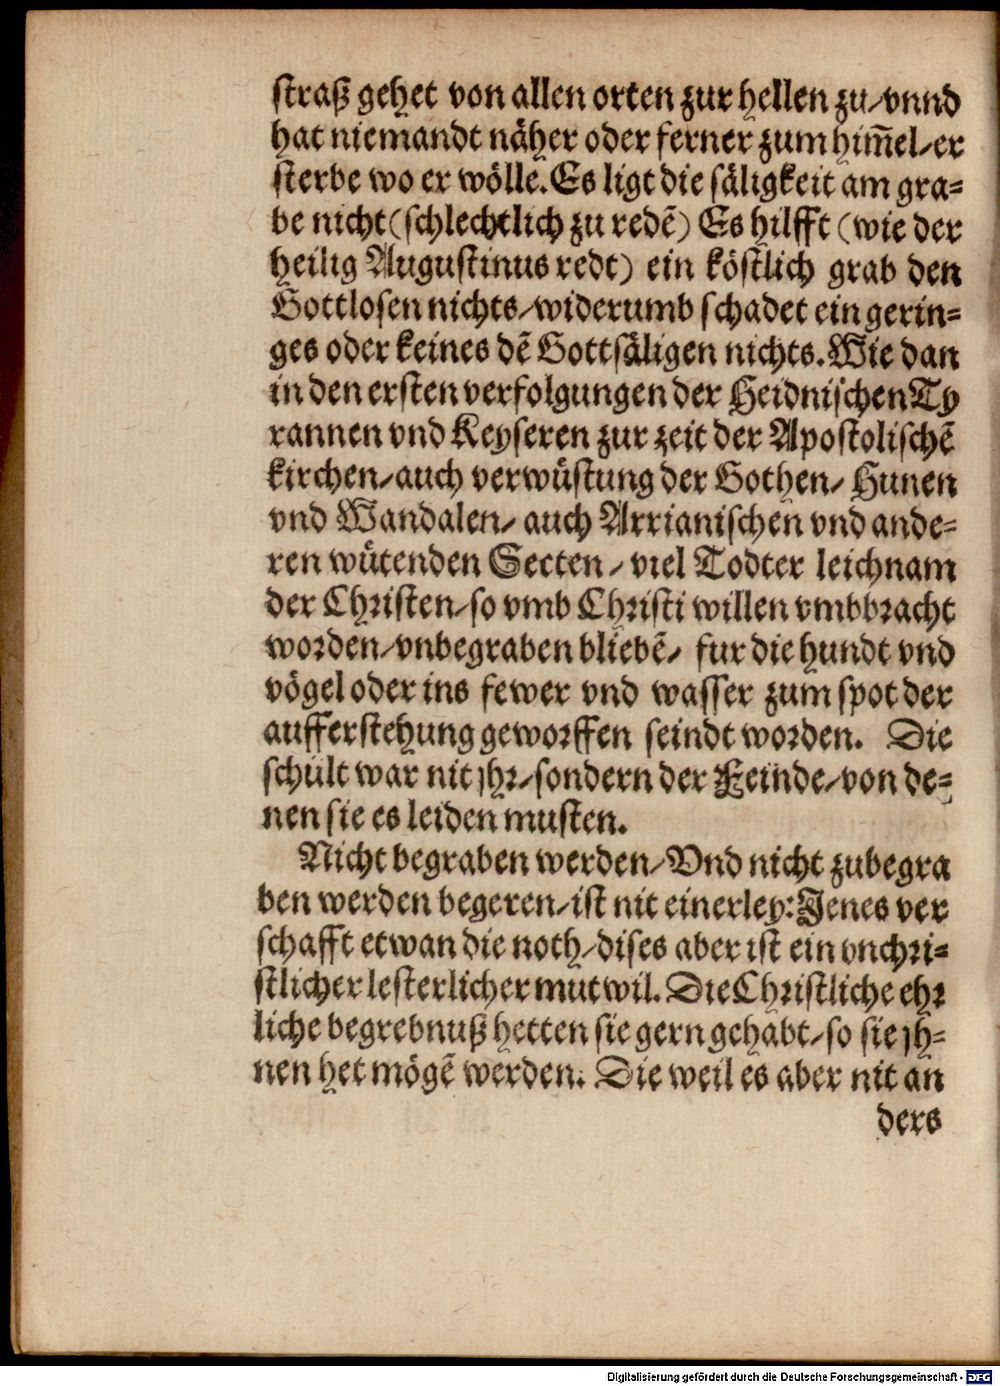 straß gehet von allen orten zur hellen zu/vnnd
hat niemandt näher oder ferner zum him̄el/er
sterbe wo er wölle. Es ligt die säligkeit am gra⸗
be nicht (schlechtlich zu redē) Es hilfft (wie der
heilig Augustinus redt) ein köstlich grab den
Gottlosen nichts/widerumb schadet ein gerin⸗
ges oder keines dē Gottsäligen nichts. Wie dan
in den ersten verfolgungen der Heidnischen Ty
rannen vnd Keyseren zur zeit der Apostolischē
kirchen/auch verwüstung der Gothen/ Hunen
vnd Wandalen/ auch Arrianischen vnd ande⸗
ren wütenden Secten/ viel Todter leichnam
der Christen/so vmb Christi willen vmbbracht
worden/vnbegraben bliebē/ fur die hundt vnd
vögel oder ins fewer vnd wasser zum spot der
aufferstehung geworffen seindt worden. Die
schült war nit jhr/sondern der Feinde/von de⸗
nen sie es leiden musten.
Nicht begraben werden/Vnd nicht zubegra
ben werden begeren/ist nit einerley: Jenes ver
schafft etwan die noth/dises aber ist ein vnchri⸗
stlicher lesterlicher mutwil. Die Christliche ehr
liche begrebnuß hetten sie gern gehabt/so sie jh⸗
nen het mögē werden. Die weil es aber nit an
ders
Digitalisierung gefördert durch die Deutsche Forschungsgemeinschaft - DFG